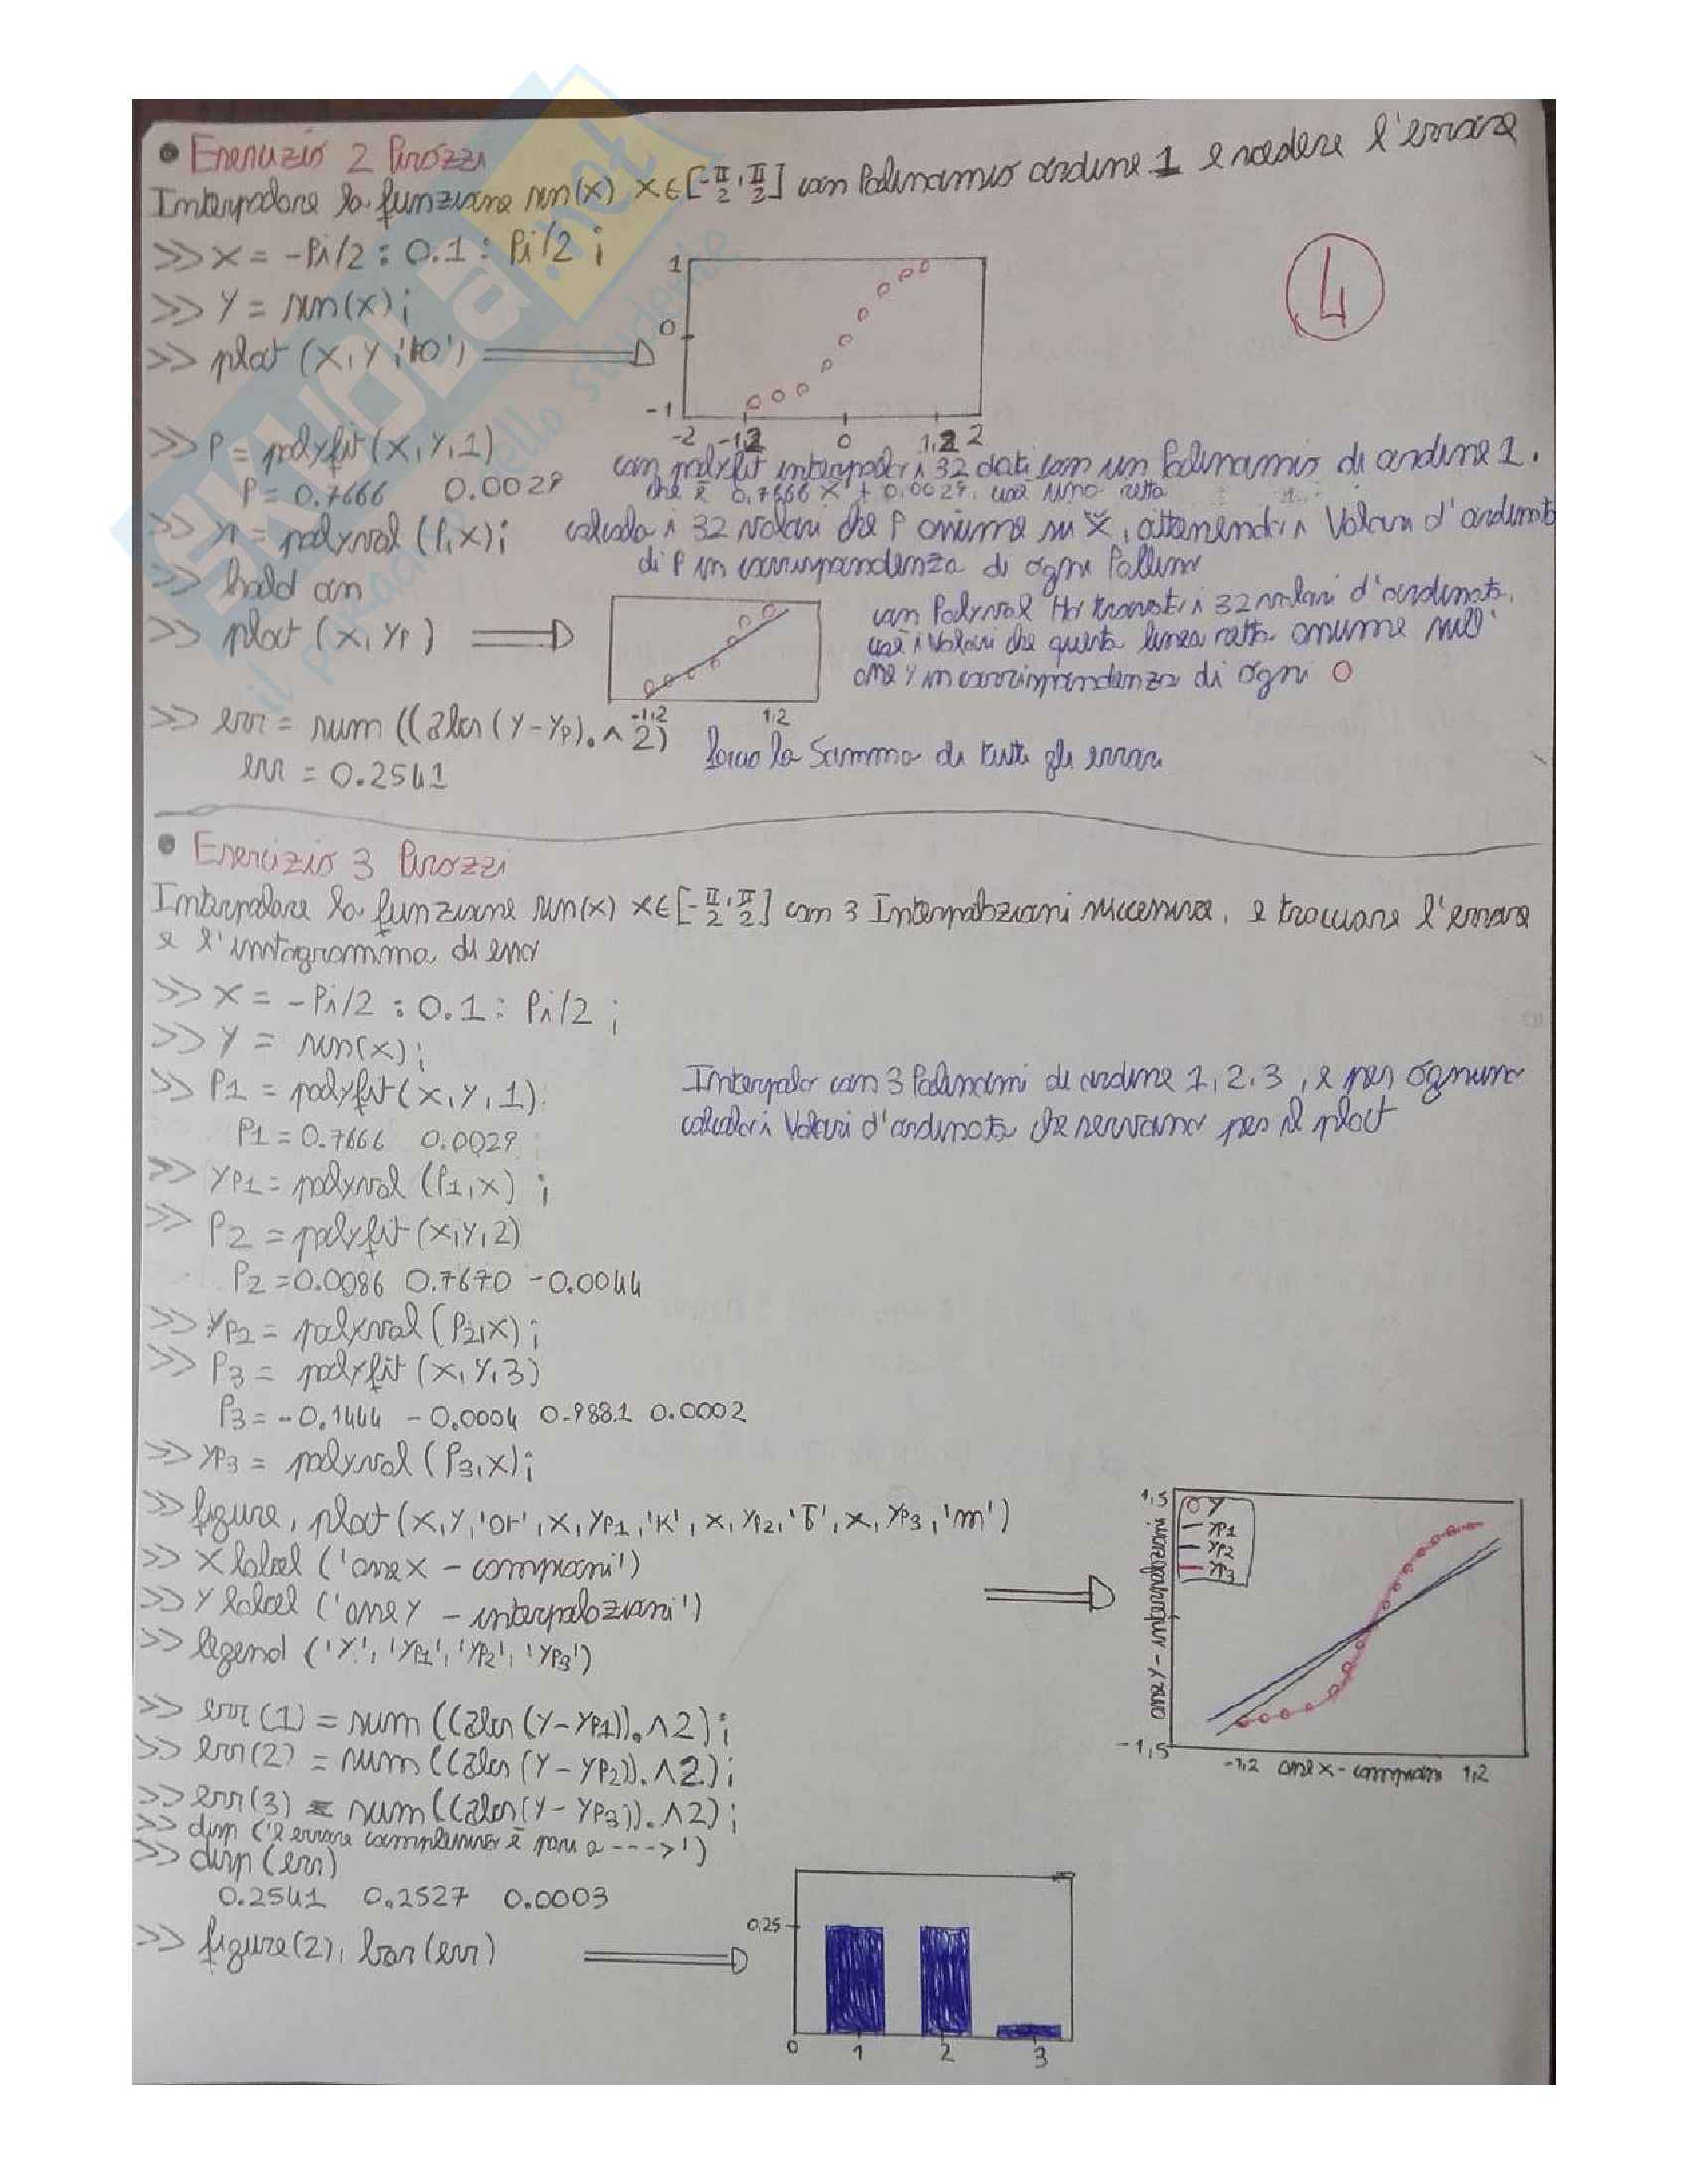 • Esercizio 2 Pirozzi
Interpolare la funzione sin(x) x∈[-π/2, π/2] con Polinomio ordine 1 e vedere l'errore
>> x = -Pi/2 : 0.1 : Pi/2 ;
>> y = sin(x) ;
>> plot (x, y, 'ro')
1
0
-1
-2 -1,2 0 1,2 2
4
>> P = polyfit (x, y, 1)
P = 0.7666 0.0029
con polyfit interpolo i 32 dati con un Polinomio di ordine 1.
che è 0,7666 x + 0,0029, cioè una retta
>> yp = polyval (P, x) ;
calcolo i 32 valori che P assume su x, ottenendo i Valori d'ordinata
di P in corrispondenza di ogni Pallino
>> hold on
>> plot (x, yp)
-1,2 1,2
con Polyval Ho trovato i 32 valori d'ordinata,
cioè i Valori che questa linea retta assume sull'
asse y in corrispondenza di ogni o
>> err = sum ((abs (y-yp).^2)
err = 0.2541
Faccio la Somma di tutti gli errori
• Esercizio 3 Pirozzi
Interpolare la funzione sin(x) x∈[-π/2, π/2] con 3 Interpolazioni successive, e tracciare l'errore
e l'istogramma di error
>> x = -Pi/2 : 0.1 : Pi/2 ;
>> y = sin(x) ;
>> P1 = polyfit (x, y, 1)
P1 = 0.7666 0.0029
Interpolo con 3 Polinomi di ordine 1, 2, 3, e per ognuno
calcolo i Valori d'ordinata che servono per il plot
>> yp1 = polyval (P1, x) ;
>> P2 = polyfit (x, y, 2)
P2 = 0.0086 0.7670 -0.0044
>> yp2 = polyval (P2, x) ;
>> P3 = polyfit (x, y, 3)
P3 = -0.1444 -0.0004 0.9881 0.0002
>> yp3 = polyval (P3, x) ;
>> figure, plot (x, y, 'or', x, yp1, 'k', x, yp2, 'b', x, yp3, 'm')
>> xlabel ('asse x - campioni')
>> ylabel ('asse y - interpolazioni')
>> legend ('y', 'yp1', 'yp2', 'yp3')
1,5
y
yp1
yp2
yp3
asse y - interpolazioni
-1,5
-1,2 asse x - campioni 1,2
>> err (1) = sum ((abs (y-yp1)).^2) ;
>> err (2) = sum ((abs (y-yp2)).^2) ;
>> err (3) = sum ((abs (y-yp3)).^2) ;
>> disp ('l errore complessivo è pari a --->')
>> disp (err)
0.2541 0,2527 0.0003
>> figure (2), bar (err)
0,25
0 1 2 3
SKUOLA.net
il paradiso dello studente